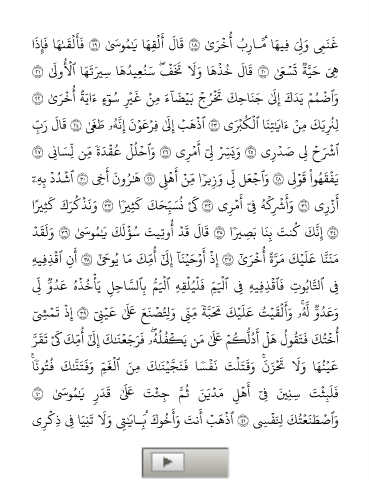 غَنَمِى وَلِىَ فِيهَا مَـَٔارِبُ أُخْرَىٰ ١٨ قَالَ أَلْقِهَا يَٰمُوسَىٰ ١٩ فَأَلْقَىٰهَا فَإِذَا
هِىَ حَيَّةٌ تَسْعَىٰ ٢٠ قَالَ خُذْهَا وَلَا تَخَفْ ۖ سَنُعِيدُهَا سِيرَتَهَا ٱلْأُولَىٰ ٢١
وَٱضْمُمْ يَدَكَ إِلَىٰ جَنَاحِكَ تَخْرُجْ بَيْضَآءَ مِنْ غَيْرِ سُوٓءٍ ءَايَةً أُخْرَىٰ ٢٢
لِنُرِيَكَ مِنْ ءَايَٰتِنَا ٱلْكُبْرَى ٢٣ ٱذْهَبْ إِلَىٰ فِرْعَوْنَ إِنَّهُۥ طَغَىٰ ٢٤ قَالَ رَبِّ
ٱشْرَحْ لِى صَدْرِى ٢٥ وَيَسِّرْ لِىٓ أَمْرِى ٢٦ وَٱحْلُلْ عُقْدَةً مِّن لِّسَانِى ٢٧
يَفْقَهُوا۟ قَوْلِى ٢٨ وَٱجْعَل لِّى وَزِيرًا مِّنْ أَهْلِى ٢٩ هَٰرُونَ أَخِى ٣٠ ٱشْدُدْ بِهِۦٓ
أَزْرِى ٣١ وَأَشْرِكْهُ فِىٓ أَمْرِى ٣٢ كَىْ نُسَبِّحَكَ كَثِيرًا ٣٣ وَنَذْكُرَكَ كَثِيرًا
٣٤ إِنَّكَ كُنتَ بِنَا بَصِيرًا ٣٥ قَالَ قَدْ أُوتِيتَ سُؤْلَكَ يَٰمُوسَىٰ ٣٦ وَلَقَدْ
مَنَنَّا عَلَيْكَ مَرَّةً أُخْرَىٰٓ ٣٧ إِذْ أَوْحَيْنَآ إِلَىٰٓ أُمِّكَ مَا يُوحَىٰٓ ٣٨ أَنِ ٱقْذِفِيهِ
فِى ٱلتَّابُوتِ فَٱقْذِفِيهِ فِى ٱلْيَمِّ فَلْيُلْقِهِ ٱلْيَمُّ بِٱلسَّاحِلِ يَأْخُذْهُ عَدُوٌّ لِّى
وَعَدُوٌّ لَّهُۥ ۚ وَأَلْقَيْتُ عَلَيْكَ مَحَبَّةً مِّنِّى وَلِتُصْنَعَ عَلَىٰ عَيْنِىٓ ٣٩ إِذْ تَمْشِىٓ
أُخْتُكَ فَتَقُولُ هَلْ أَدُلُّكُمْ عَلَىٰ مَن يَكْفُلُهُۥ ۖ فَرَجَعْنَٰكَ إِلَىٰٓ أُمِّكَ كَىْ تَقَرَّ
عَيْنُهَا وَلَا تَحْزَنَ ۚ وَقَتَلْتَ نَفْسًا فَنَجَّيْنَٰكَ مِنَ ٱلْغَمِّ وَفَتَنَّٰكَ فُتُونًا ۚ
فَلَبِثْتَ سِنِينَ فِىٓ أَهْلِ مَدْيَنَ ثُمَّ جِئْتَ عَلَىٰ قَدَرٍ يَٰمُوسَىٰ ٤٠
وَٱصْطَنَعْتُكَ لِنَفْسِى ٤١ ٱذْهَبْ أَنتَ وَأَخُوكَ بِـَٔايَٰتِى وَلَا تَنِيَا فِى ذِكْرِى